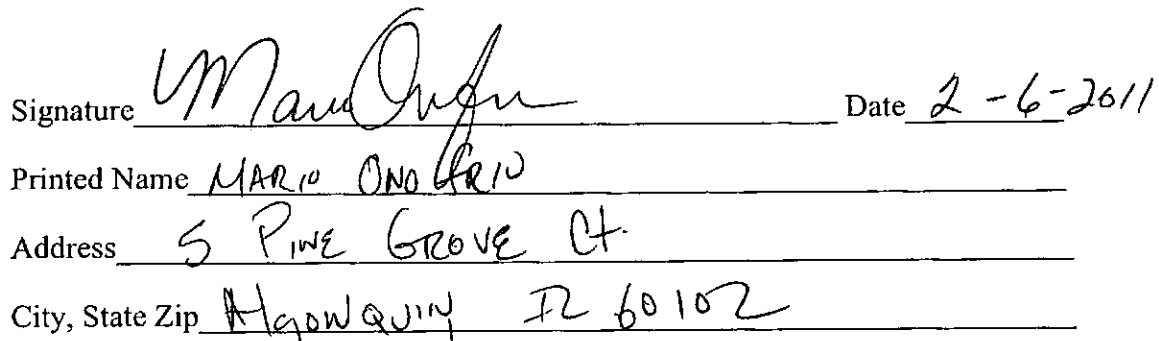 Signature Mario Onofrio Date 2-6-2011
Printed Name MARIO ONOFRIO
Address 5 PINE GROVE Ct.
City, State Zip Algonquin IL 60102